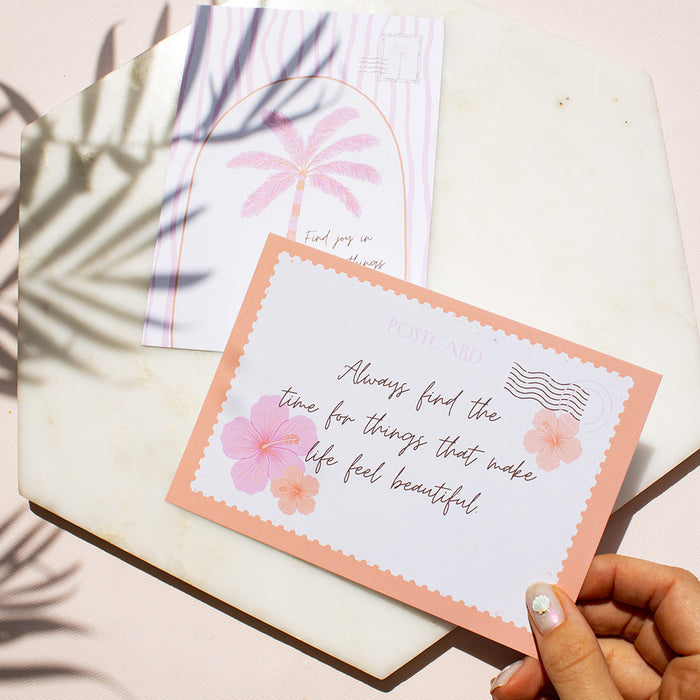 Find joy in
things
POSTCARD
Always find the
time for things that make
life feel beautiful.